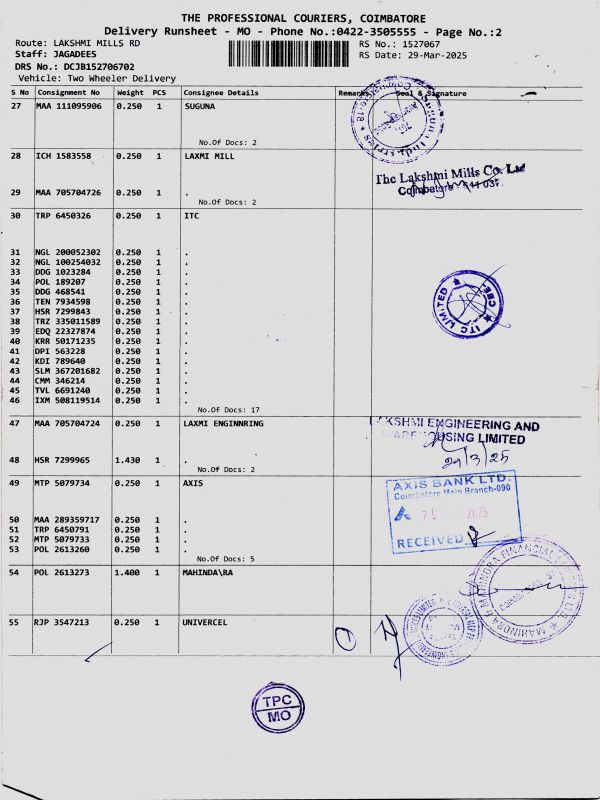 THE PROFESSIONAL COURIERS, COIMBATORE
Delivery Runsheet - MO - Phone No.:0422-3505555 - Page No.:2
Route: LAKSHMI MILLS RD
RS No.: 1527067
Staff: JAGADEES
RS Date: 29-Mar-2025
DRS No.: DCJB152706702
Vehicle: Two Wheeler Delivery
S No Consignment No Weight PCS Consignee Details Remarks Seal & Signature
27 MAA 111095906 0.250 1 SUGUNA
No.Of Docs: 2
28 ICH 1583558 0.250 1 LAXMI MILL
The Lakshmi Mills Co. Ltd
Coimbatore 641 037.
29 MAA 705704726 0.250 1 .
No.Of Docs: 2
30 TRP 6450326 0.250 1 ITC
31 NGL 200052302 0.250 1 .
32 NGL 100254032 0.250 1 .
33 DDG 1023284 0.250 1 .
34 POL 189207 0.250 1 .
35 DDG 468541 0.250 1 .
36 TEN 7934598 0.250 1 .
37 HSR 7299843 0.250 1 .
38 TRZ 335011589 0.250 1 .
39 EDQ 22327874 0.250 1 .
40 KRR 50171235 0.250 1 .
41 DPI 563228 0.250 1 .
42 KDI 789640 0.250 1 .
43 SLM 367201682 0.250 1 .
44 CMM 346214 0.250 1 .
45 TVL 6691240 0.250 1 .
46 IXM 508119514 0.250 1 .
No.Of Docs: 17
ITC LIMITED
47 MAA 705704724 0.250 1 LAXMI ENGINNRING
LAKSHMI ENGINEERING AND
WAREHOUSING LIMITED
29/3/25
48 HSR 7299965 1.430 1 .
No.Of Docs: 2
49 MTP 5079734 0.250 1 AXIS
AXIS BANK LTD.
Coimbatore Main Branch-090
2025
RECEIVED
50 MAA 289359717 0.250 1 .
51 TRP 6450791 0.250 1 .
52 MTP 5079733 0.250 1 .
53 POL 2613260 0.250 1 .
No.Of Docs: 5
54 POL 2613273 1.400 1 MAHINDA\RA
MAHINDRA & MAHINDRA FINANCIAL
55 RJP 3547213 0.250 1 UNIVERCEL
TPC
MO